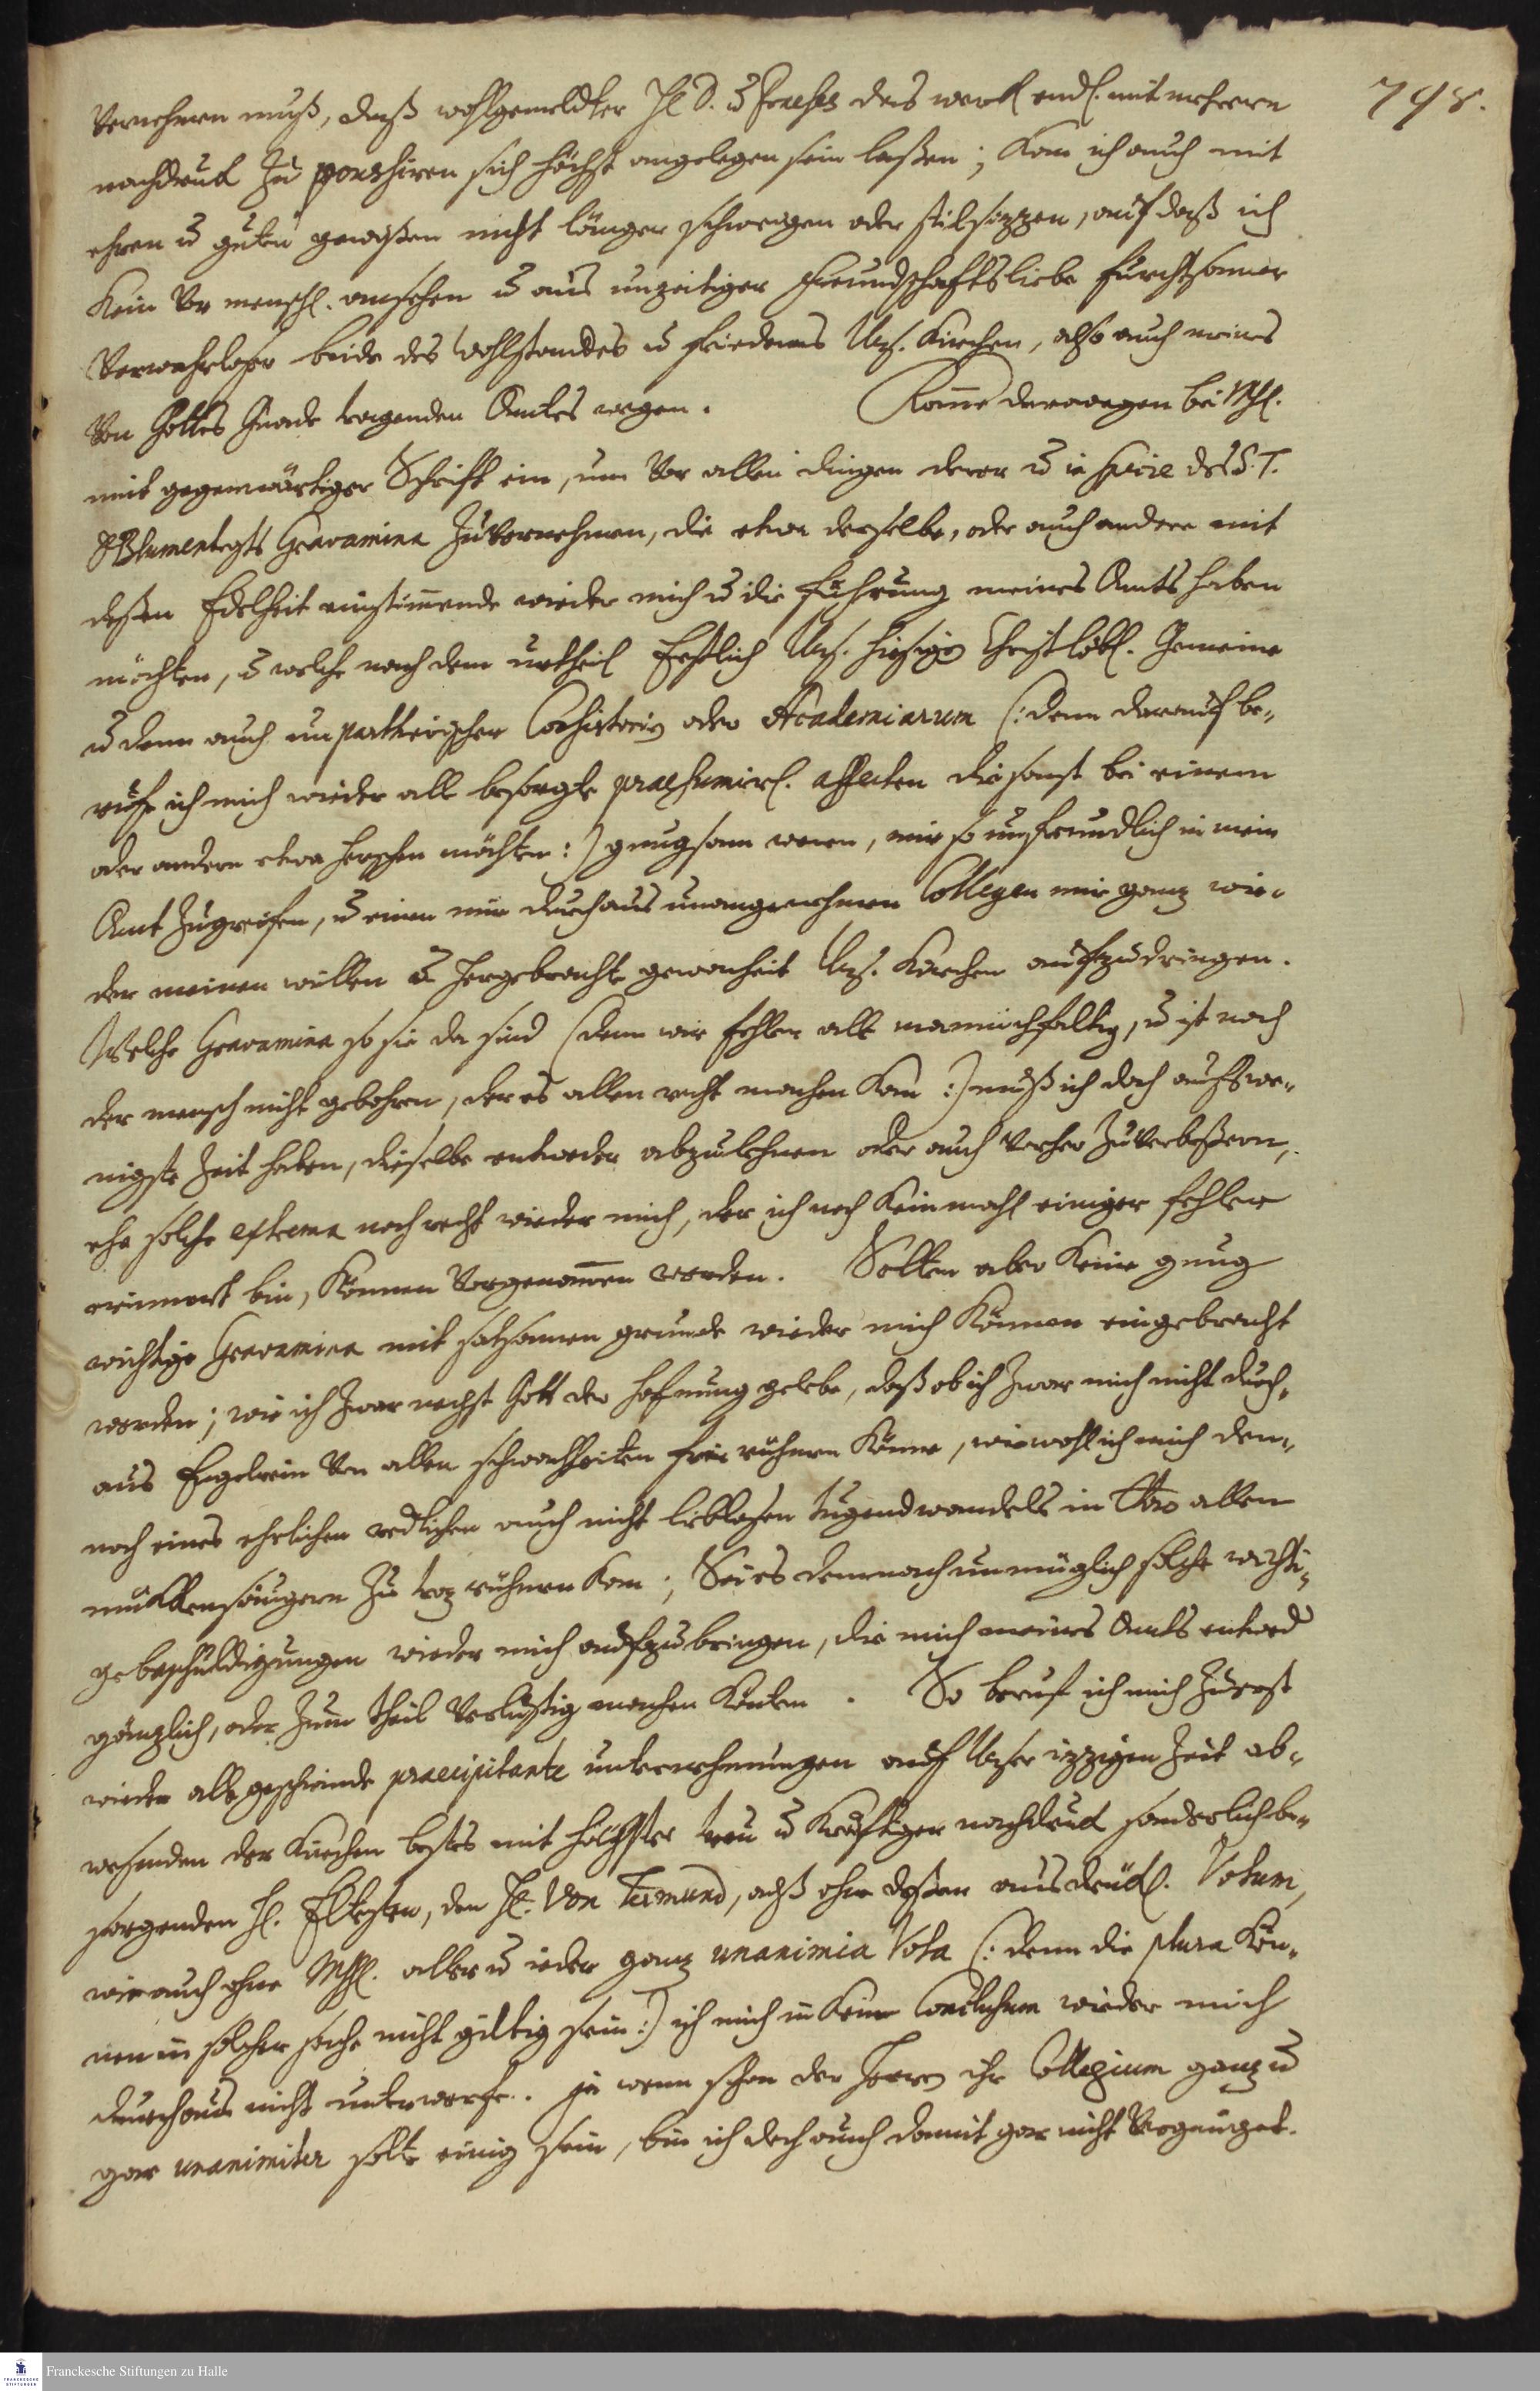 798.
Vernehmen muß, daß wohlgemeldter H D. u Praeses des werk endl. mit mehrern
nachdruck zu poushiren sich höchst angelegen sein laßen; Kan ich auch mit
ehren u guten gewißen nicht länger schweigen oder stilsizzen, auf daß ich
Kein Vor menschl. ansehen u aus unzeitiger Freundschaftsliebe furchtsamer
Verwahrloser beide des Wohlstandes u friedens Uns. Kirchen, also auch meines
Von Gottes Gnade tragenden Amtes wegen. Komme derowegen bei
mit gegenwärtiger Schrift ein, um Vor allen dingen derer u in specie des S. T.
H Blumentrosts Gravamina zuVernehmen, die etwa derselbe, oder auch andere mit
deßen Edelheit einstimmende wieder mich u die führung meines Amts haben
möchten, u welche nach dem urtheil Erstlich Uns. hiesigen Christlöbl. Gemeine
u denn auch unpartheiischer Consistorien oder Academiarum (: denn darauf be-
rufe ich mich wieder alle besorgte praesumirl. affecten die sonst bei einem
oder andern etwa herschen möchten :) gnugsam weren, mir so unfreundlich in mein
Amt zugreifen, u einen mir durchaus unangenehmen Collegen mir ganz wie-
der meinen willen u hergebrachte gewonheit Uns. Kirchen aufzudringen.
Welche Gravamina so sie da sind (denn wir fehlen alle mannichfaltig, u ist noch
der mensch nicht gebohren, der es allen recht machen Kan :) muß ich doch aufs we-
nigste Zeit haben, dieselbe entweder abzulehnen oder auch Vorher zuVerbeßern,
ehe solche extrema noch recht wieder mich, der ich noch Keinmahl einiger fehler
erinnert bin, Können Vorgenommen werden. Solten aber Keine gnug
wichtige Gravamina mit sathsamen grunde wieder mich Können eingebracht
werden; wie ich zwar nechst Gott der hofnung gelebe, daß ob ich zwar mich nicht durch-
aus Engelrein Von allen schwachheiten frei rühmen Könne, wiewohl ich mich den-
noch eines ehrlichen redlichen auch nicht lieblosen tugendwandels in Christo allen
mükkensäugern zu troz rühmen Kan; Sei es demnach unmüglich solche wichti-
ge beschuldigungen wieder mich aufzubringen, die mich meines Amts entwed
gänzlich, oder zum theil Verlustig machen Könten. So beruf ich mich zuerst
wieder alle geschwinde praecipitante unternehmungen auf Unser izzigen Zeit ab-
wesenden der Kirchen bestes mit höchster treu u Kräftigen nachdruck sonderlich be-
sorgenden H. Eltesten, den H. Von Termund, alß ohn deßen ausdrükl. Votum,
wie auch ohne aller u ieder ganz unanimia Vota (: denn die plura Kön-
nen in solcher sache nicht gültig sein :) ich mich in Kein Conclusum wieder mich
durchaus nicht unterwerfe. ja wenn schon der Herren ihr Collegium ganz u
gar unanimiter solte einig sein, bin ich doch auch damit gar nicht Vergnüget.
Franckesche Stiftungen zu Halle